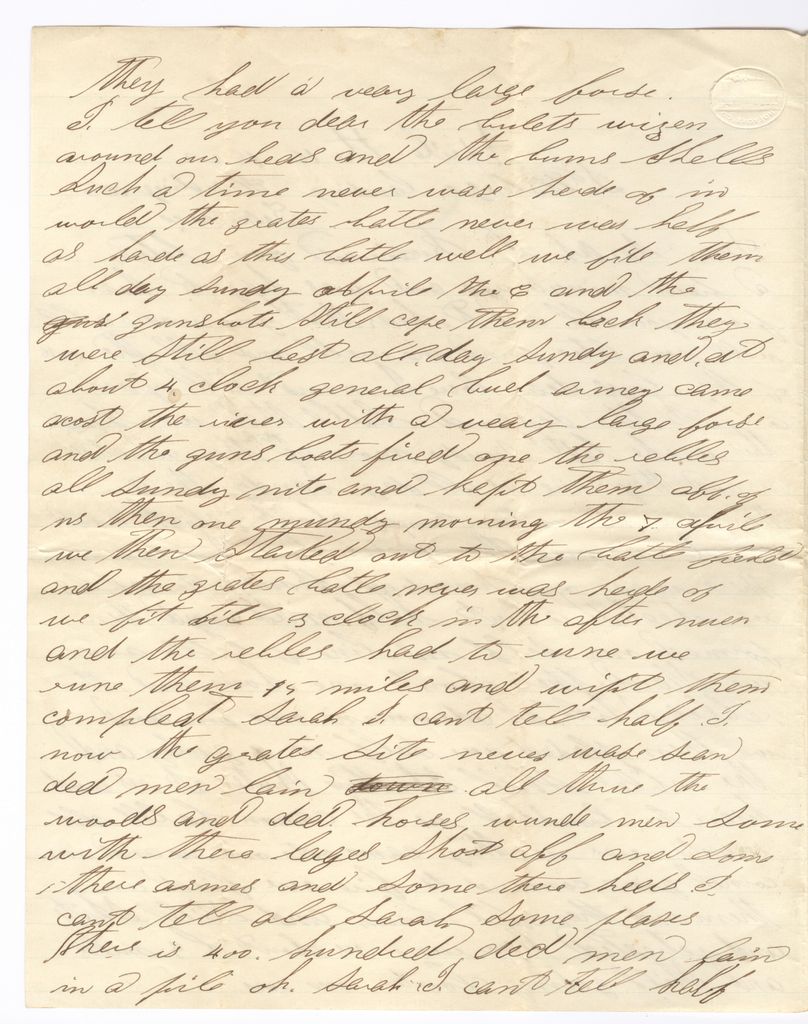 they had a veary large forse.
I. tell you dear the bulets wizen
around our heds and the bums shells
Such a time never wase herde of in
world the grates batle never was half
as harde as this batle well we fite them
all day sundy apprile the 6 and the
gunsbots still cepe them back they
were still best all day sundy and at
about 4, clock general buel armey came
acost the river with a veary large forse
and the guns boats fired one the rebles
all sundy nite and kept them off. of
us then one mundy morning the 7 aprile
we then started out to the batle fielde
and the grates batle never was herde of
we fit till 3 clock in the after nuen
and the rebles had to rune we
rune them 15 miles and wipt them
compleat Sarah I. cant tell half I.
now the grates site never wase sean
ded men lain down all thrue the
woods and ded horses wunde men some
with there leges shot off and some
there armes and some there heds I.
cant tell all Sarah some plases
there is 400. hundred ded men lain
in a pile oh. Sarah I. cant tell half